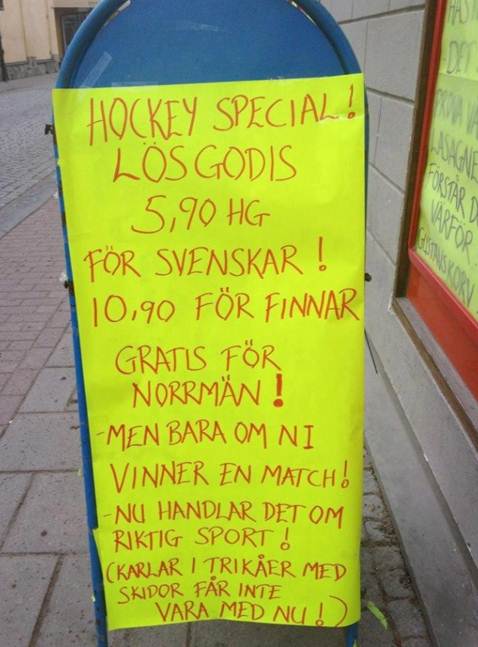 HOCKEY SPECIAL!
LÖSGODIS
5,90 HG
FÖR SVENSKAR!
10,90 FÖR FINNAR
GRATIS FÖR
NORRMÄN!
-MEN BARA OM NI
VINNER EN MATCH!
-NU HANDLAR DET OM
RIKTIG SPORT!
(KARLAR I TRIKÅER MED
SKIDOR FÅR INTE
VARA MED NU!)
DET
LASAGNE
FÖRSTÅR D
VARFÖR